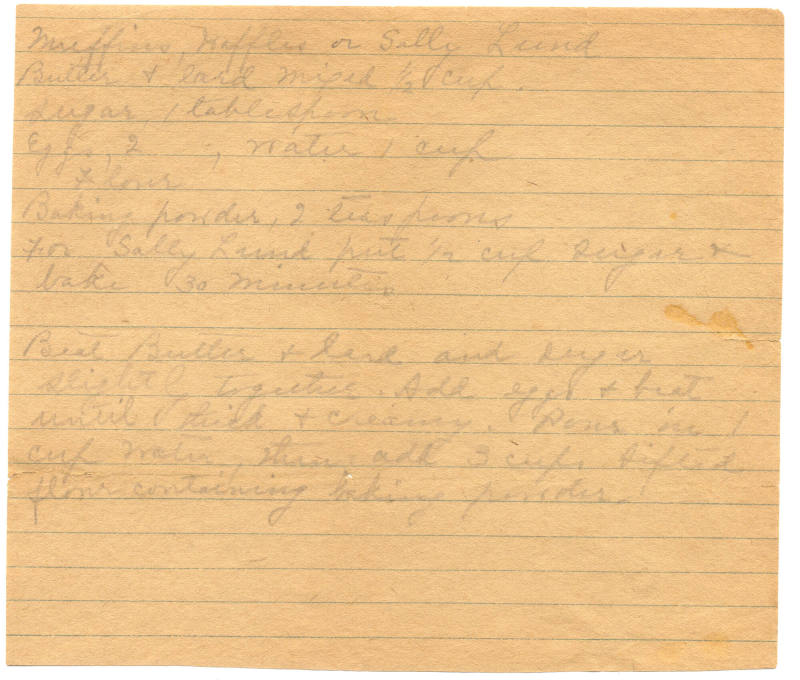 Muffins, Waffles or Sally Lund
Butter & lard mixed 1/2 cup.
Sugar, 1 tablespoon
Eggs, 2 , Water 1 cup
Flour
Baking powder, 2 teaspoons
For Sally Lund put 1/2 cup sugar &
bake 30 minutes.
Beat Butter & Lard and sugar
slightly together. Add eggs & beat
until thick & creamy. Pour in 1
cup water, then add 3 cups sifted
flour containing baking powder.